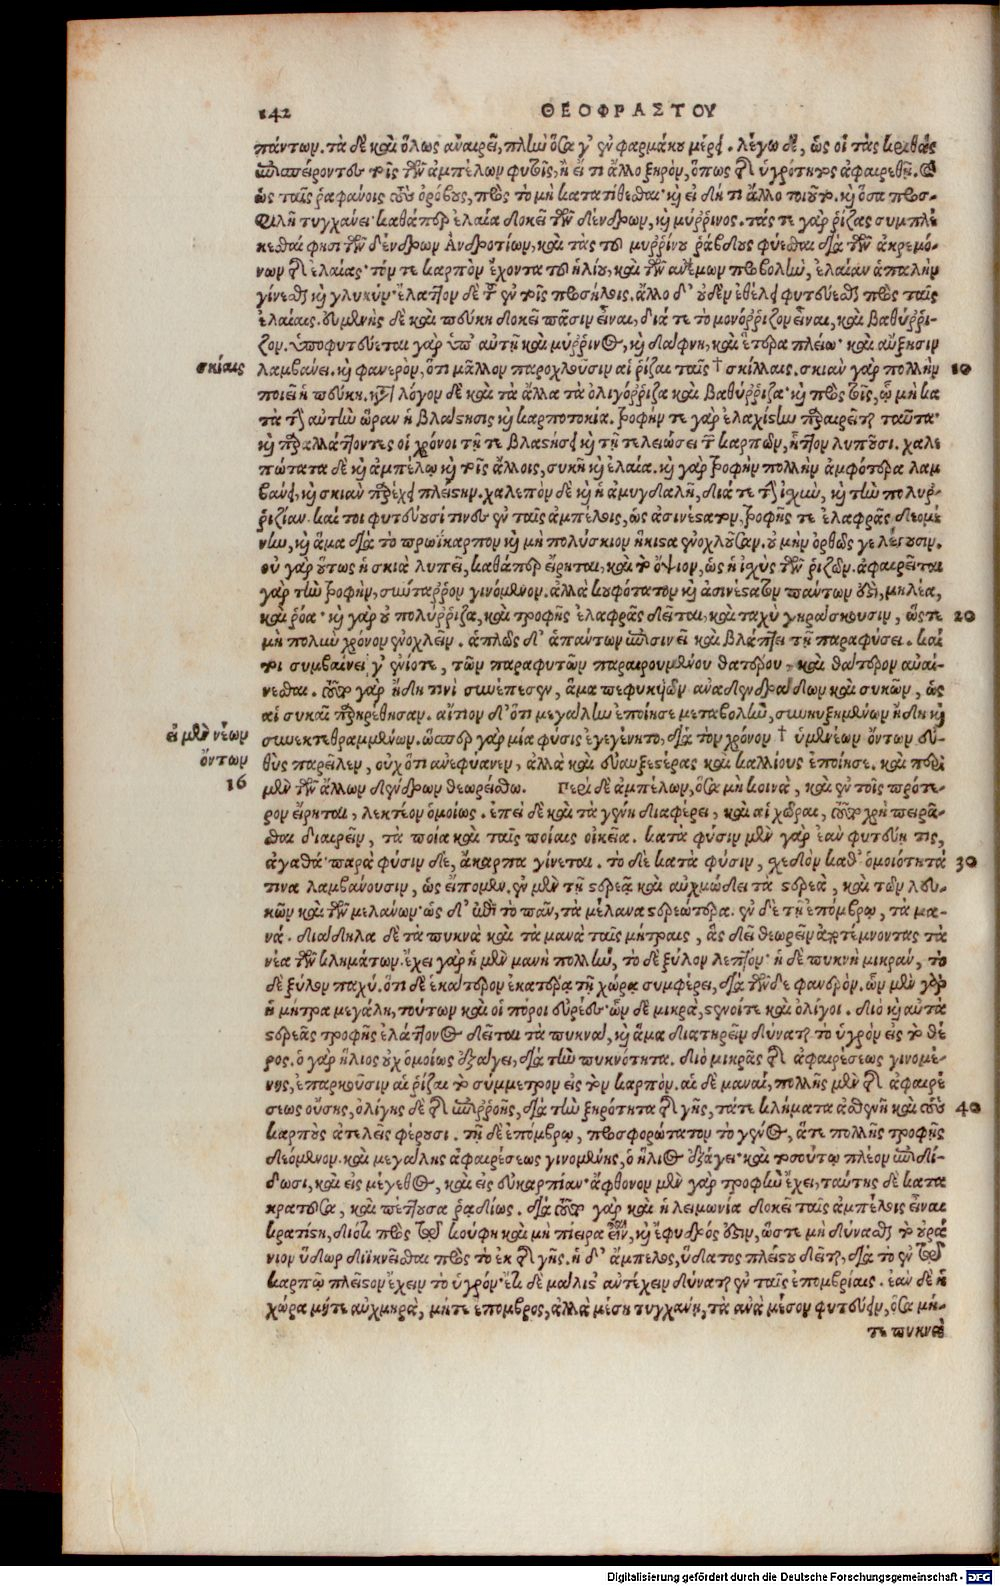 142 ΘΕΟΦΡΑΣΤΟΥ
πάντων. τὰ δὲ καὶ ὅλως ἀναιρεῖ, πλὴν ὅσα γ' ἐν φαρμάκου μέρει. λέγω δὲ, ὡς οἱ τὰς κριθὰς
ἐπισπείροντες τοῖς τῶν ἀμπέλων φυτοῖς, ἢ εἴ τι ἄλλο ξηρὸν, ὅπως τῆς ὑγρότητος ἀφαιρεθῇ. καὶ
ὡς ταῖς ῥαφάνοις τοὺς ὀρόβους, πρὸς τὸ μὴ κατατίθεσθαι· καὶ εἰ δή τι ἄλλο τοιοῦτο. καὶ ὅσα προσ-
φιλῆ τυγχάνει· καθάπερ ἐλαία δοκεῖ τῶν δένδρων, καὶ μύρρινος. τάς τε γὰρ ῥίζας συμπλέ
κεσθαί φησι τῶν δένδρων Ἀνδροτίων, καὶ τὰς τοῦ μυρρίνου ῥάβδους φύεσθαι διὰ τῶν ἀκρεμό-
νων τῆς ἐλαίας· τόν τε καρπὸν ἔχοντα τοῦ ἡλίου, καὶ τῶν ἀνέμων προβολὴν, ἐλαίαν ἁπαλὴν
γίνεσθαι καὶ γλυκύν· ἔλαττον δὲ τῶν ἐν τοῖς προσήλοις. ἄλλο δ' οὐδὲν ἐθέλει φυτεύεσθαι πρὸς ταῖς
ἐλαίαις. εὐμενὴς δὲ καὶ πεύκη δοκεῖ πᾶσιν εἶναι, διά τε τὸ μονόρριζον εἶναι, καὶ βαθύρρι-
ζον. ὑποφυτεύεται γὰρ ὑπ' αὐτῇ καὶ μύρρινος, καὶ δάφνη, καὶ ἕτερα πλείω· καὶ αὔξησιν
σκίαις λαμβάνει. καὶ φανερὸν, ὅτι μᾶλλον παροχλοῦσιν αἱ ῥίζαι ταῖς † σκίλλαις. σκιὰν γὰρ πολλὴν 10
ποιεῖ ἡ πεύκη. κατὰ λόγον δὲ καὶ τὰ ἄλλα τὰ ὀλιγόρριζα καὶ βαθύρριζα· καὶ πρὸς τοῖς, ᾧ μὴ κα
τὰ τὴν αὐτὴν ὥραν ἡ βλάστησις καὶ καρποτοκία. τροφήν τε γὰρ ἐλαχίστην παραιρεῖται ταῦτα·
καὶ παραλλάττοντες οἱ χρόνοι τῇ τε βλαστήσει καὶ τῇ τελειώσει τῶν καρπῶν, ἧττον λυποῦσι. χαλε
πώτατα δὲ καὶ ἀμπέλῳ καὶ τοῖς ἄλλοις, συκῆ καὶ ἐλαία. καὶ γὰρ τροφὴν πολλὴν ἀμφότερα λαμ
βάνει, καὶ σκιὰν παρέχει πλείστην. χαλεπὸν δὲ καὶ ἡ ἀμυγδαλῆ, διά τε τὴν ἰχὺν, καὶ τὴν πολυρ-
ριζίαν. καίτοι φυτεύουσί τινες ἐν ταῖς ἀμπέλοις, ὡς ἀσινέστατον, τροφῆς τε ἐλαφρᾶς δεομέ
νην, καὶ ἅμα διὰ τὸ πρωΐκαρπον καὶ μὴ πολύσκιον ἥκιστα ἐνοχλοῦσαν. οὐ μὴν ὀρθῶς γε λέγουσιν.
οὐ γὰρ οὕτως ἡ σκιὰ λυπεῖ, καθάπερ εἴρηται, καὶ τὸ ὄψιον, ὡς ἡ ἰχὺς τῶν ῥιζῶν. ἀφαιρεῖται
γὰρ τὴν τροφὴν, σύνταρρον γινόμενον. ἀλλὰ κουφότατον καὶ ἀσινέστατον πάντων ἐστὶ, μηλέα,
καὶ ῥόα· καὶ γὰρ οὐ πολύρριζα, καὶ τροφῆς ἐλαφρᾶς δεῖται, καὶ ταχὺ γηράσκουσιν, ὥστε 20
μὴ πολὺν χρόνον ἐνοχλεῖν. ἁπλῶς δ' ἁπάντων ἐπισινεῖ καὶ βλάπτει τῇ παραφύσει. καί
τοι συμβαίνει γ' ἐνίοτε, τῶν παραφυτῶν παραιρουμένου θατέρου, καὶ θάτερον αὐαί-
νεσθαι. τοῦτο γὰρ ἤδη τινὶ συνέπεσεν, ἅμα πεφυκυιῶν ἀναδενδράδων καὶ συκῶν, ὡς
αἱ συκαῖ παρῃρέθησαν. αἴτιον δ' ὅτι μεγάλην ἐποίησε μεταβολὴν, συνηυξημένων ἤδη καὶ
εἰ μὲν νέων συνεκτεθραμμένων. ὥσπερ γὰρ μία φύσις ἐγεγένητο, διὰ τὸν χρόνον † ὑμενέων ὄντων εὐ-
ὄντων θὺς παρεῖλεν, οὐχ ὅτι ἀνεφυανεν, ἀλλὰ καὶ εὐαυξεστέρας καὶ καλλίους ἐποίησε. καὶ περὶ
16 μὲν τῶν ἄλλων δένδρων θεωρείσθω. Περὶ δὲ ἀμπέλων, ὅσα μὴ κοινὰ, καὶ ἐν τοῖς πρότε-
ρον εἴρηται, λεκτέον ὁμοίως. ἐπεὶ δὲ καὶ τὰ γένη διαφέρει, καὶ αἱ χῶραι, τοῦτο χρὴ πειρᾶ-
σθαι διαιρεῖν, τὰ ποῖα καὶ ταῖς ποίαις οἰκεῖα. κατὰ φύσιν μὲν γὰρ ἐὰν φυτεύῃ τις,
ἀγαθά· παρὰ φύσιν δὲ, ἄκαρπα γίνεται. τὸ δὲ κατὰ φύσιν, σχεδὸν καθ' ὁμοιότητά 30
τινα λαμβάνουσιν, ὡς εἴπομεν. ἐν μὲν τῇ στερεᾷ καὶ αὐχμώδει τὰ στερεὰ, καὶ τῶν λευ-
κῶν καὶ τῶν μελάνων· ὡς δ' ἐπὶ τὸ πᾶν, τὰ μέλανα στερεώτερα. ἐν δὲ τῇ ἐπόμβρῳ, τὰ μα-
νά. διάδηλα δὲ τὰ πυκνὰ καὶ τὰ μανὰ ταῖς μήτραις, ἃς δεῖ θεωρεῖν ἀρτέμνοντας τὰ
νέα τῶν κλημάτων. ἔχει γὰρ ἡ μὲν μανὴ πολλὴν, τὸ δὲ ξύλον λεπτόν· ἡ δὲ πυκνὴ μικρὰν, τὸ
δὲ ξύλον παχύ. ὅτι δὲ ἑκάτερον ἑκατέρᾳ τῇ χώρᾳ συμφέρει, διὰ τῶνδε φανερὸν. ὧν μὲν γὰρ
ἡ μήτρα μεγάλη, τούτων καὶ οἱ πόροι εὐρεῖς· ὧν δὲ μικρὰ, στενοίτε καὶ ὀλίγοι. διὸ καὶ αὐτὰ
στερεᾶς τροφῆς ἐλάττονος δεῖται τὰ πυκνὰ, καὶ ἅμα διατηρεῖν δύναται τὸ ὑγρὸν εἰς τὸ θέ
ρος. ὁ γὰρ ἥλιος οὐχ ὁμοίως ἐξάγει, διὰ τὴν πυκνότητα. διὸ μικρᾶς τῆς ἀφαιρέσεως γινομέ-
νης, ἐπαρκοῦσιν αἱ ῥίζαι τὸ σύμμετρον εἰς τὸν καρπὸν. αἱ δὲ μαναὶ, πολλῆς μὲν τῆς ἀφαιρέ
σεως οὔσης, ὀλίγης δὲ τῆς ἐπιρροῆς, διὰ τὴν ξηρότητα τῆς γῆς, τάτε κλήματα ἀσθενῆ καὶ τοὺς 40
καρποὺς ἀτελεῖς φέρουσι. τῇ δὲ ἐπόμβρῳ, προσφορώτατον τὸ γένος, ἅτε πολλῆς τροφῆς
δεόμενον. καὶ μεγάλης ἀφαιρέσεως γινομένης, ὁ ἥλιος ἐξάγει· καὶ τοσούτῳ πλέον ἐπιδί-
δωσι, καὶ εἰς μέγεθος, καὶ εἰς εὐκαρπίαν· ἄφθονον μὲν γὰρ τροφὴν ἔχει, ταύτης δὲ κατα
κρατοῦσα, καὶ πέττουσα ῥᾳδίως. διὰ τοῦτο γὰρ καὶ ἡ λειμωνία δοκεῖ ταῖς ἀμπέλοις εἶναι
κρατίστη, διότι πρὸς τῷ κούφη καὶ μὴ πίειρα εἶναι, καὶ ἔφυδρός ἐστιν, ὥστε μὴ δύνασθαι τὸ οὐρά
νιον ὕδωρ διϊκνεῖσθαι πρὸς τὸ ἐκ τῆς γῆς. ἡ δ' ἄμπελος, ὕδατος πλείστου δεῖται, διὰ τὸ ἐν τῷ
καρπῷ πλεῖστον ἔχειν τὸ ὑγρόν· ἔτι δὲ μάλιστ' ἀντέχειν δύναται ἐν ταῖς ἐπομβρίαις. ἐὰν δὲ ἡ
χώρα μήτε αὐχμηρὰ, μήτε ἔπομβρος, ἀλλὰ μέση τυγχάνῃ, τὰ ἀνὰ μέσον φυτεύειν, ὅσα μή-
τε πυκνὰ
Digitalisierung gefördert durch die Deutsche Forschungsgemeinschaft - DFG